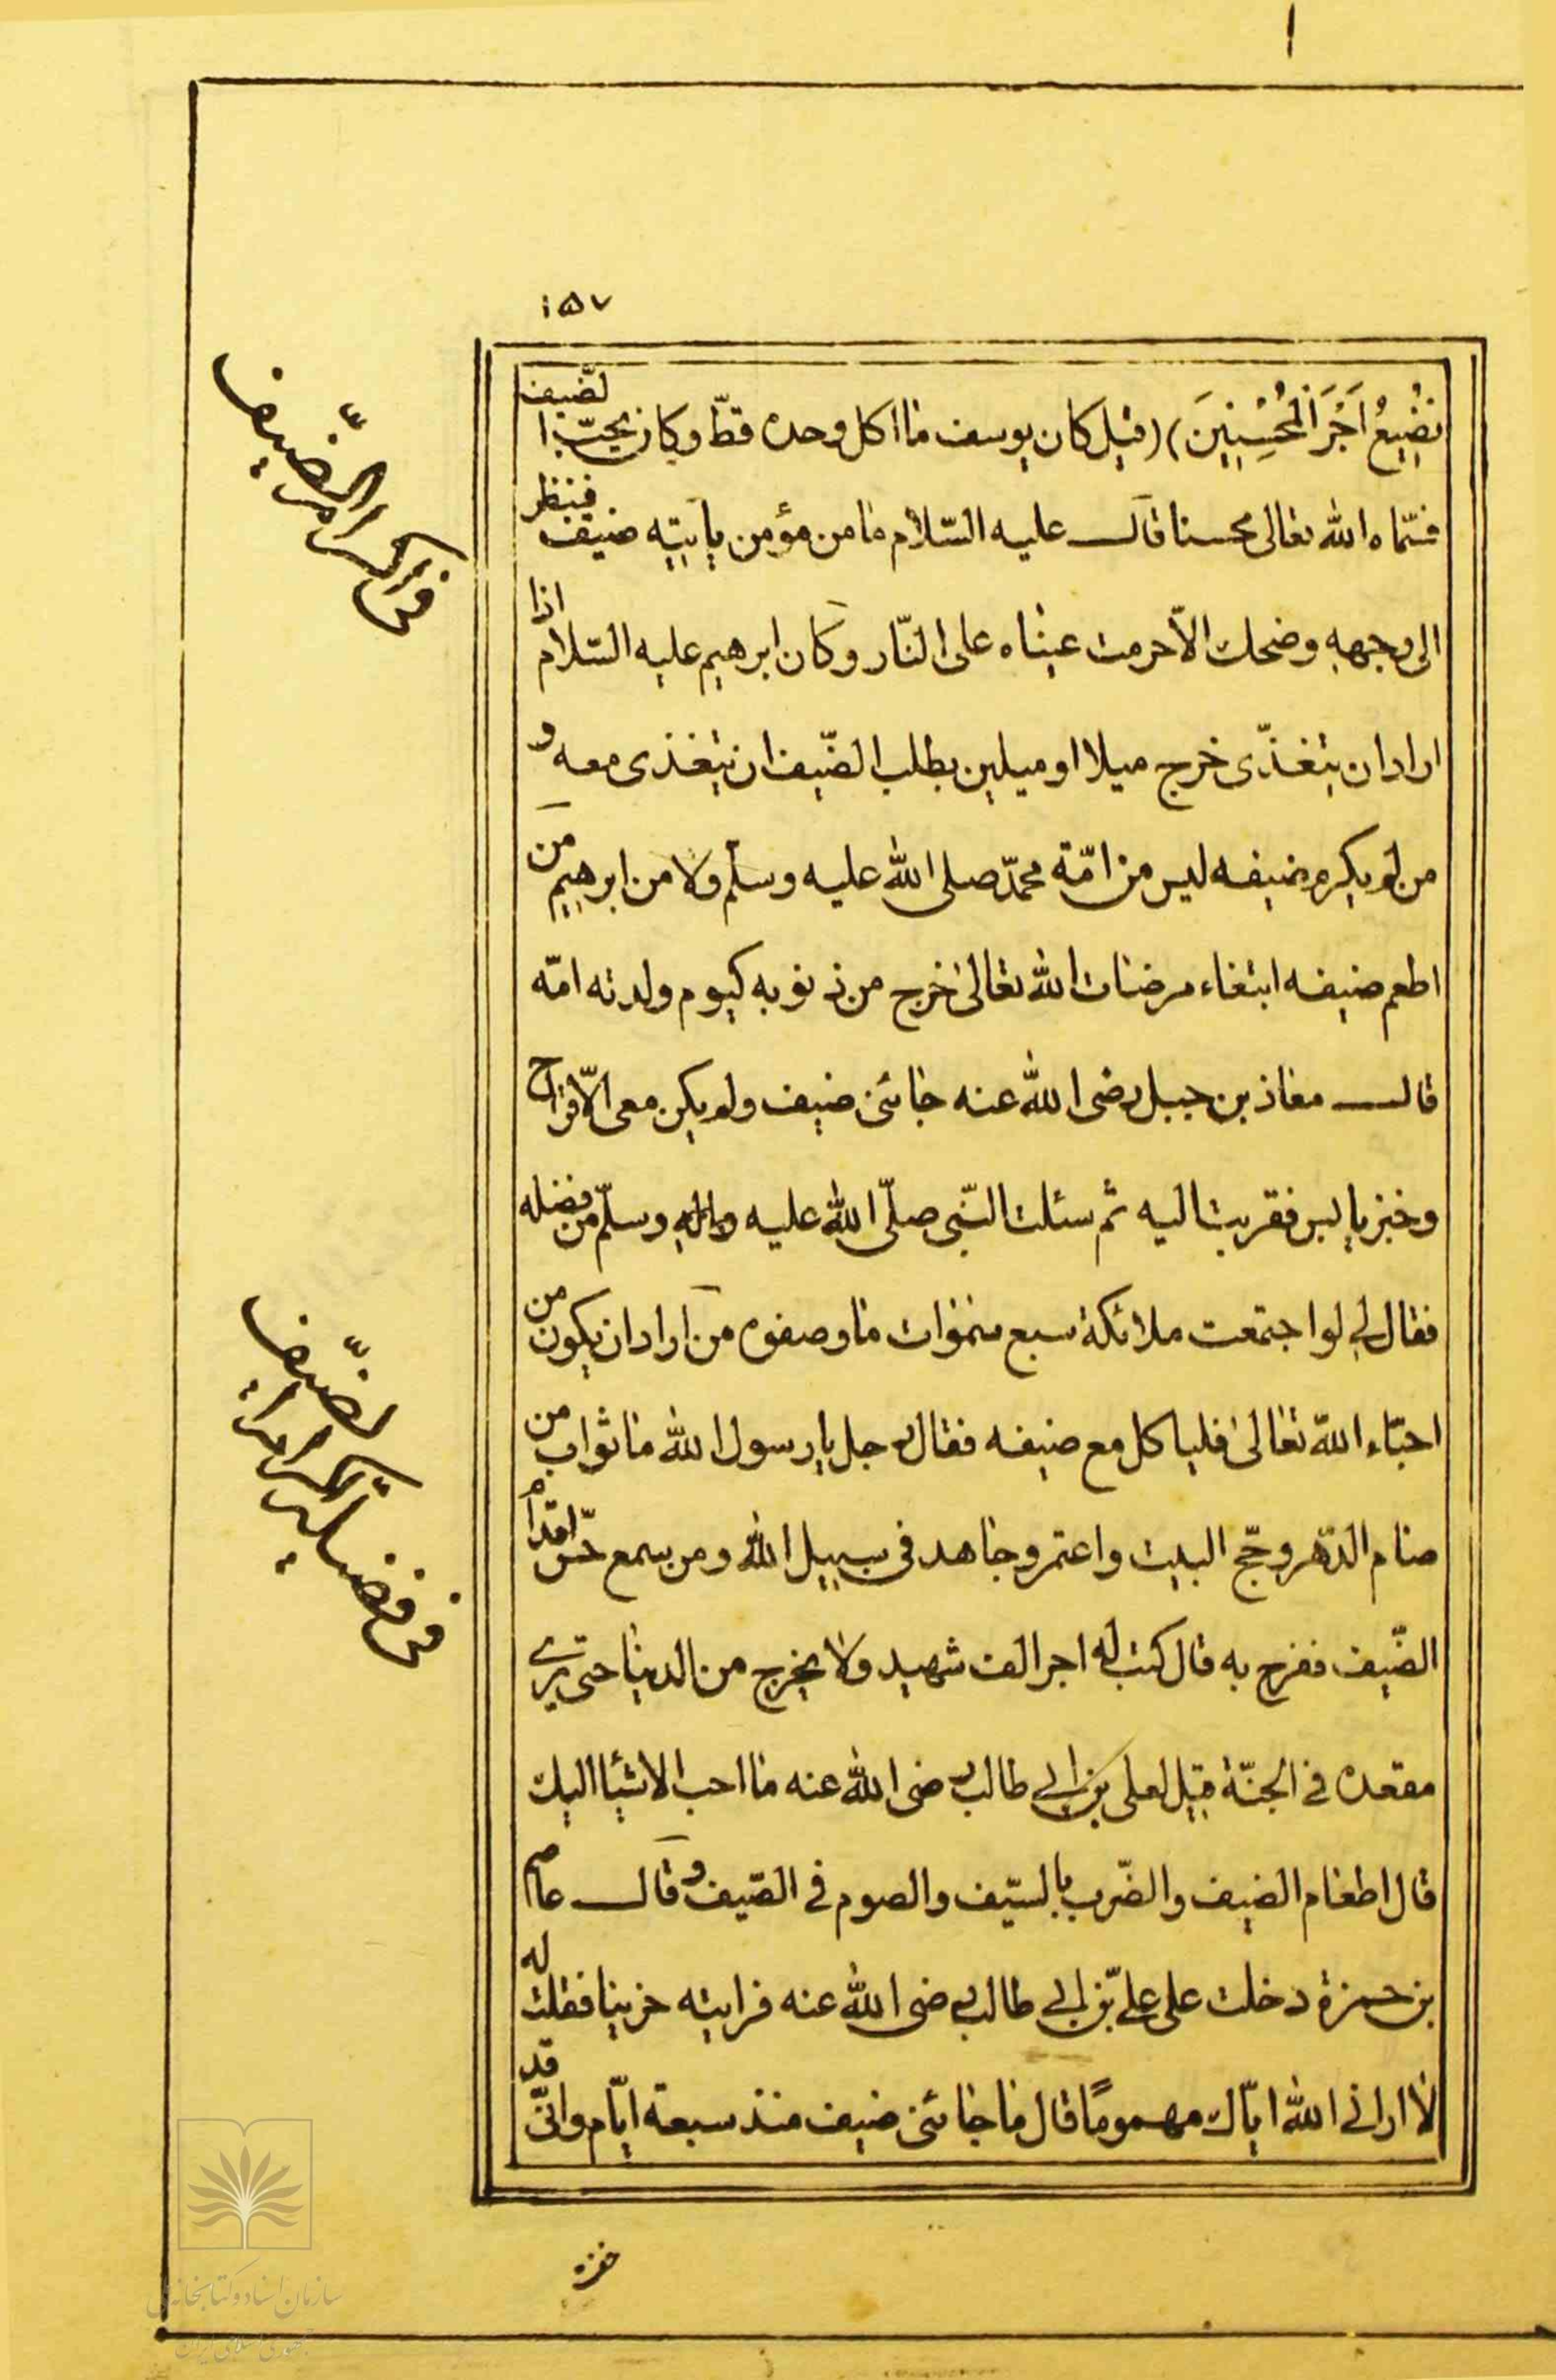 ١٥٧
نضيع اَجْرَ الْمُحْسِنِينَ) (قيل كان يوسف ما اكل وحده قطّ وكان يحبّ الضّيف
فسّماه الله تعالى محسنا قال عليه السّلام ما من مؤمن ياتيه ضيف فينظر
الى وجهه وضحك الّا حرمت عيناه على النّار وكان ابرهيم عليه السّلام اذا
اراد ان يتغذّى خرج ميلا او ميلين بطلب الضّيف ان يتغذى معه و
من لم يكرم ضيفه ليس من امّة محمّد صلى الله عليه وسلّم ولا من ابرهيم من
اطعم ضيفه ابتغاء مرضات الله تعالى خرج من ذنوبه كيوم ولدته امّه
قال معاذ بن جبل رضى الله عنه جائنى ضيف ولم يكن معى الّا قراح
وخبز يابس فقربت اليه ثم سئلت النّبى صلّى الله عليه واله وسلّم من فضله
فقال لي لو اجتمعت ملائكة سبع سموات ما وصفوه من اراد ان يكون من
احبّاء الله تعالى فلياكل مع ضيفه فقال رجل يا رسول الله ما ثواب من
صام الدّهر وحجّ البيت واعتمر وجاهد فى سبيل الله ومن سمع حسّ اقدام
الضّيف ففرح به قال كتب له اجر الف شهيد ولا يخرج من الدنيا حتى يرى
مقعده في الجنّة قيل لعلى بن ابي طالب رضى الله عنه ما احب الاشيا اليك
قال اطعام الضيف والضّرب بالسّيف والصوم في الصّيف وقال عاصم
بن حمزة دخلت على علىّ بن ابي طالب رضى الله عنه فرايته حزينا فقلت له
لا ارانى الله ايّاك مهمومًا قال ما جائنى ضيف منذ سبعة ايّام وانّى قد
فى اكرام الضّيف
فى فضيلة اكرام الضّيف
سازمان اسناد و کتابخانه ملی
جمهوری اسلامی ایران